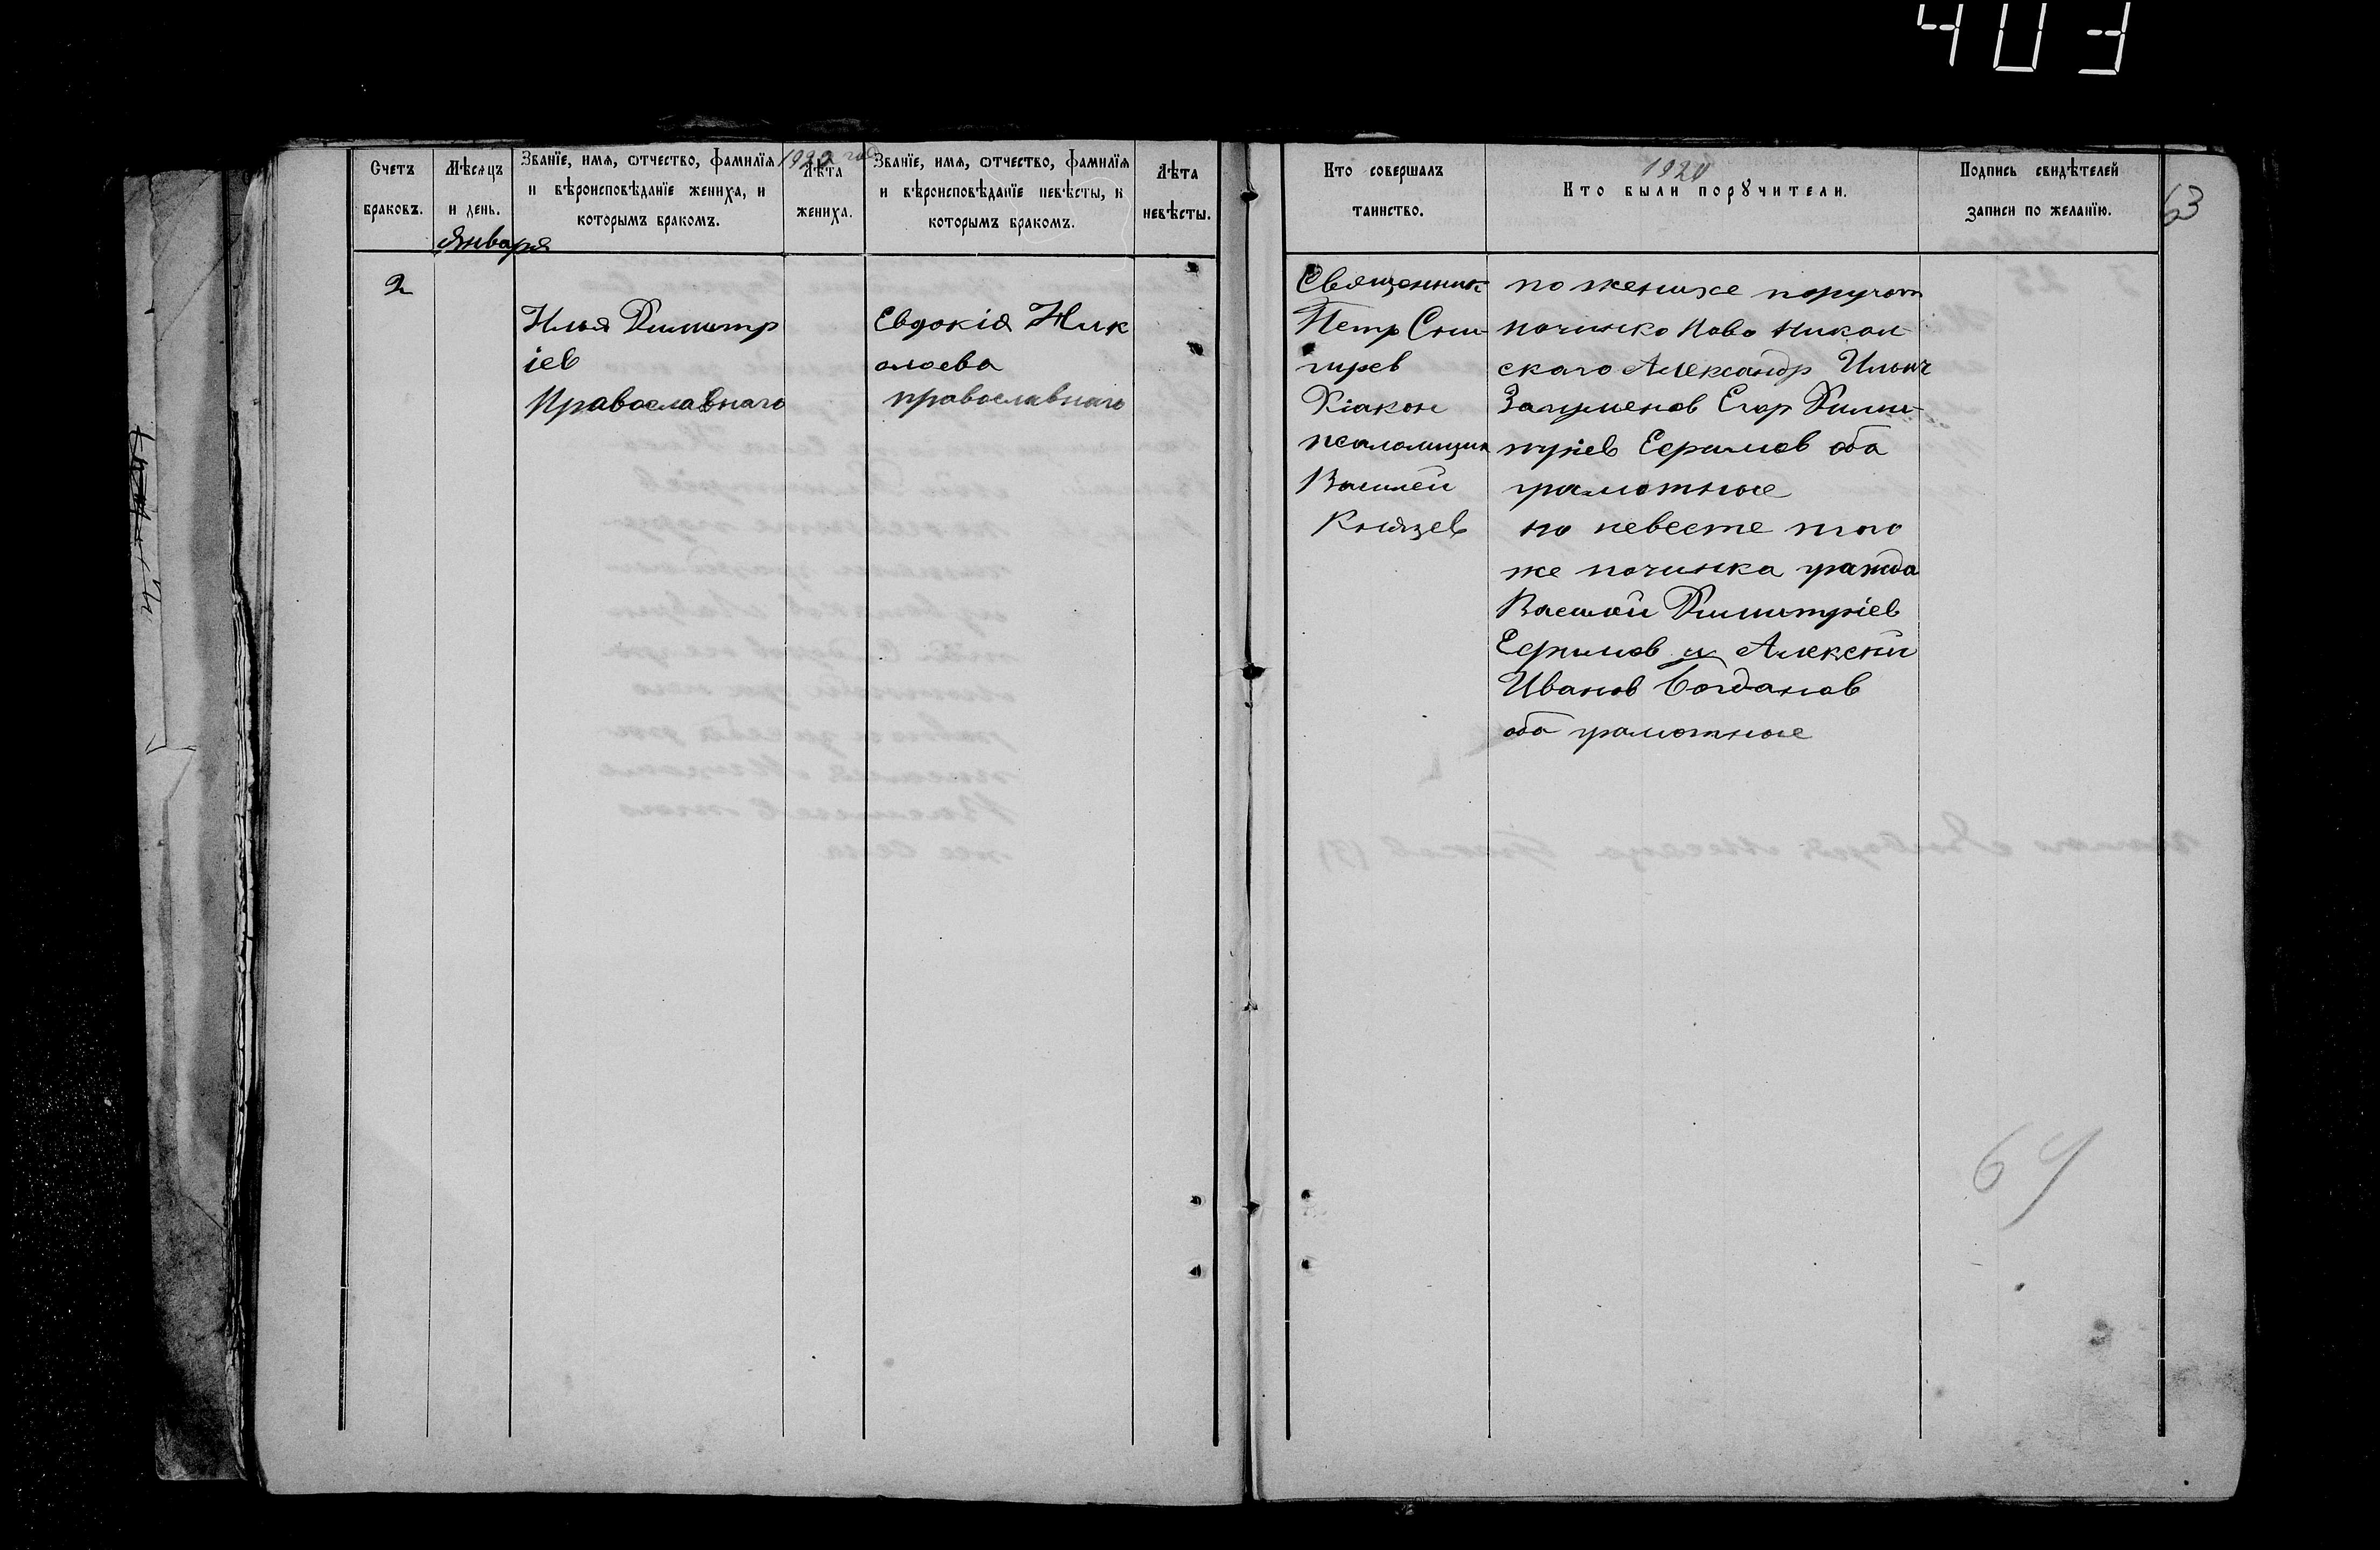 403
Счетъ
браковъ.
Мѣсяцъ
и день.
Января
Званїе, имя, ѿтчество, фамилїя
и вѣроисповѣданїе жениха, и
которымъ бракомъ.
Лѣта
жениха.
Званїе, имя, ѿтчество, фамилїя
и вѣроисповѣданїе невѣсты, и
которымъ бракомъ.
Лѣта
невѣсты.
2
Илья Димитр
іев
Православнаго
Евдокія Ник
олаева
православнаго
Кто совершалъ
таинство.
Кто были порꙋчители.
Подпись свидѣтелей
записи по желанїю.
63
Священник
Петр Сни
гирев
Діакон
псаломщик
Василей
Князев
по женихе поручат
починка Ново Никол
скаго Александр Ильич
Загуменов Егор Дими
тріев Ефимов оба
грамотные
по невесте того
же починка гражда
Василй Димитріев
Ефимов и Алексей
Иванов Богданов
оба грамотные
64